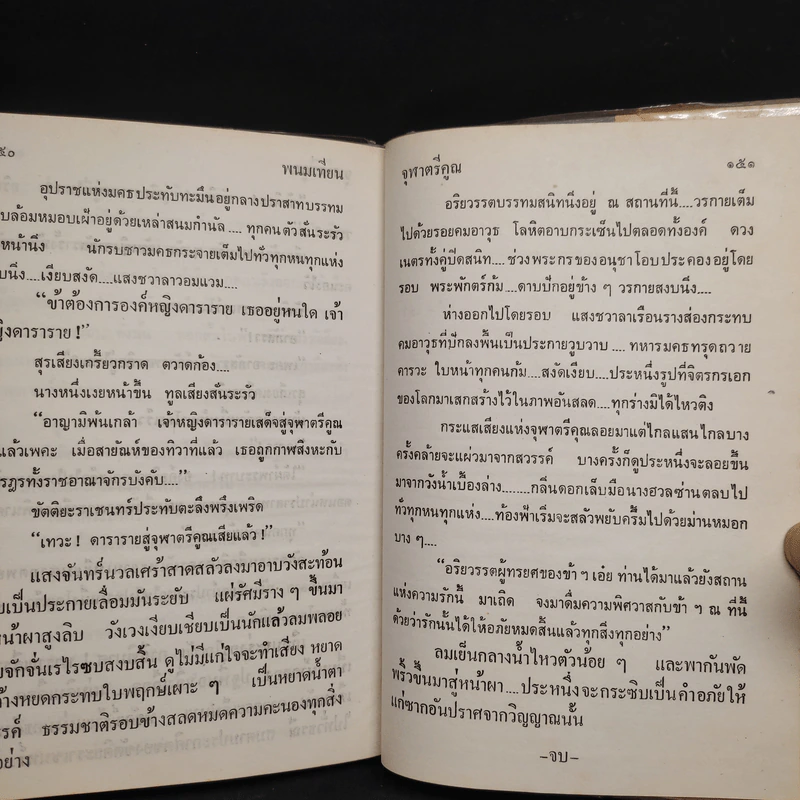 ๕๐
พนมเทียน
อุปราชแห่งมคธประทับทะมึนอยู่กลางปราสาทบรรทม
บล้อมหมอบเฝ้าอยู่ด้วยเหล่าสนมกำนัล .... ทุกคนตัวสั่นระรัว
หน้านิ่ง นักรบชาวมคธกระจายเต็มไปทั่วทุกหนทุกแห่ง
บนึ่ง....เงียบสงัด....แสงชวาลาวอมแวม....
“ข้าต้องการองค์หญิงดาราราย เธออยู่หนใด เจ้า
หญิงดาราราย !”
สุรเสียงเกรี้ยวกราด ตวาดก้อง....
นางหนึ่งเงยหน้าขึ้น ทูลเสียงสั่นระรัว
“อาญามิพ้นเกล้า เจ้าหญิงดารารายเสด็จสู่จุฬาตรีคูณ
แล้วเพคะ เมื่อสายัณห์ของทิวาที่แล้ว เธอถูกกาพสิงหะกับ
รฎรทั้งราชอาณาจักรบังคับ....”
ขัตติยะราเชนทร์ประทับตะลึงพรึงเพริด
“เทวะ ! ดารารายสู่จุฬาตรีคูณเสียแล้ว !”
แสงจันทร์นวลเศร้าสาดสลัวลงมาอาบวังสะท้อน
ยเป็นประกายเลื่อมมันระยับ แผ่รัศมีราง ๆ ขึ้นมา
หน้าผาสูงลิบ วังเวงเงียบเชียบเป็นนักแล้วลมพลอย
ยจักจั่นเรไรซบสงบสิ้น ดูไม่มีแก่ใจจะทำเสียง หยาด
ค้างหยดกระทบใบพฤกษ์เผาะ ๆ เป็นหยาดน้ำตา
รรค์ ธรรมชาติรอบข้างสลดหมดความคะนองทุกสิ่ง
อย่าง
จุฬาตรีคูณ
๑๕๑
อริยวรรตบรรทมสนิทนิ่งอยู่ ณ สถานที่นี้....วรกายเต็ม
ไปด้วยรอยคมอาวุธ โลหิตอาบกระเซ็นไปตลอดทั้งองค์ ดวง
เนตรทั้งคู่ปิดสนิท....ช่วงพระกรของอนุชาโอบประคองอยู่โดย
รอบ พระพักตร์ก้ม....ดาบปักอยู่ข้าง ๆ วรกายสงบนิ่ง....
ห่างออกไปโดยรอบ แสงชวาลาเรือนรางส่องกระทบ
คมอาวุธที่ปักลงพื้นเป็นประกายวูบวาบ .... ทหารมคธทรุดถวาย
คารวะ ใบหน้าทุกคนก้ม....สงัดเงียบ....ประหนึ่งรูปที่จิตรกรเอก
ของโลกมาเสกสร้างไว้ในภาพอันสลด....ทุกร่างมิได้ไหวติง
กระแสเสียงแห่งจุฬาตรีคุณลอยมาแต่ไกลแสนไกลบาง
ครั้งคล้ายจะแผ่วมาจากสวรรค์ บางครั้งก็ดูประหนึ่งจะลอยขึ้น
มาจากวังน้ำเบื้องล่าง........กลิ่นดอกเล็บมือนางฮวลซ่านตลบไป
ทั่วทุกหนทุกแห่ง....ท้องฟ้าเริ่มจะสลัวพยับครึ้มไปด้วยม่านหมอก
บาง ๆ....
“อริยวรรตผู้ทรยศของข้า ฯ เอ๋ย ท่านได้มาแล้วยังสถาน
แห่งความรักนี้ มาเถิด จงมาดื่มความพิศวาสกับข้า ฯ ณ ที่นี้
ด้วยว่ารักนั้นได้ให้อภัยหมดสิ้นแล้วทุกสิ่งทุกอย่าง”
ลมเย็นกลางน้ำไหวตัวน้อย ๆ และพากันพัด
พริ้วขึ้นมาสู่หน้าผา....ประหนึ่งจะกระซิบเป็นคำอภัยให้
แก่ซากอันปราศจากวิญญาณนั้น
–จบ–